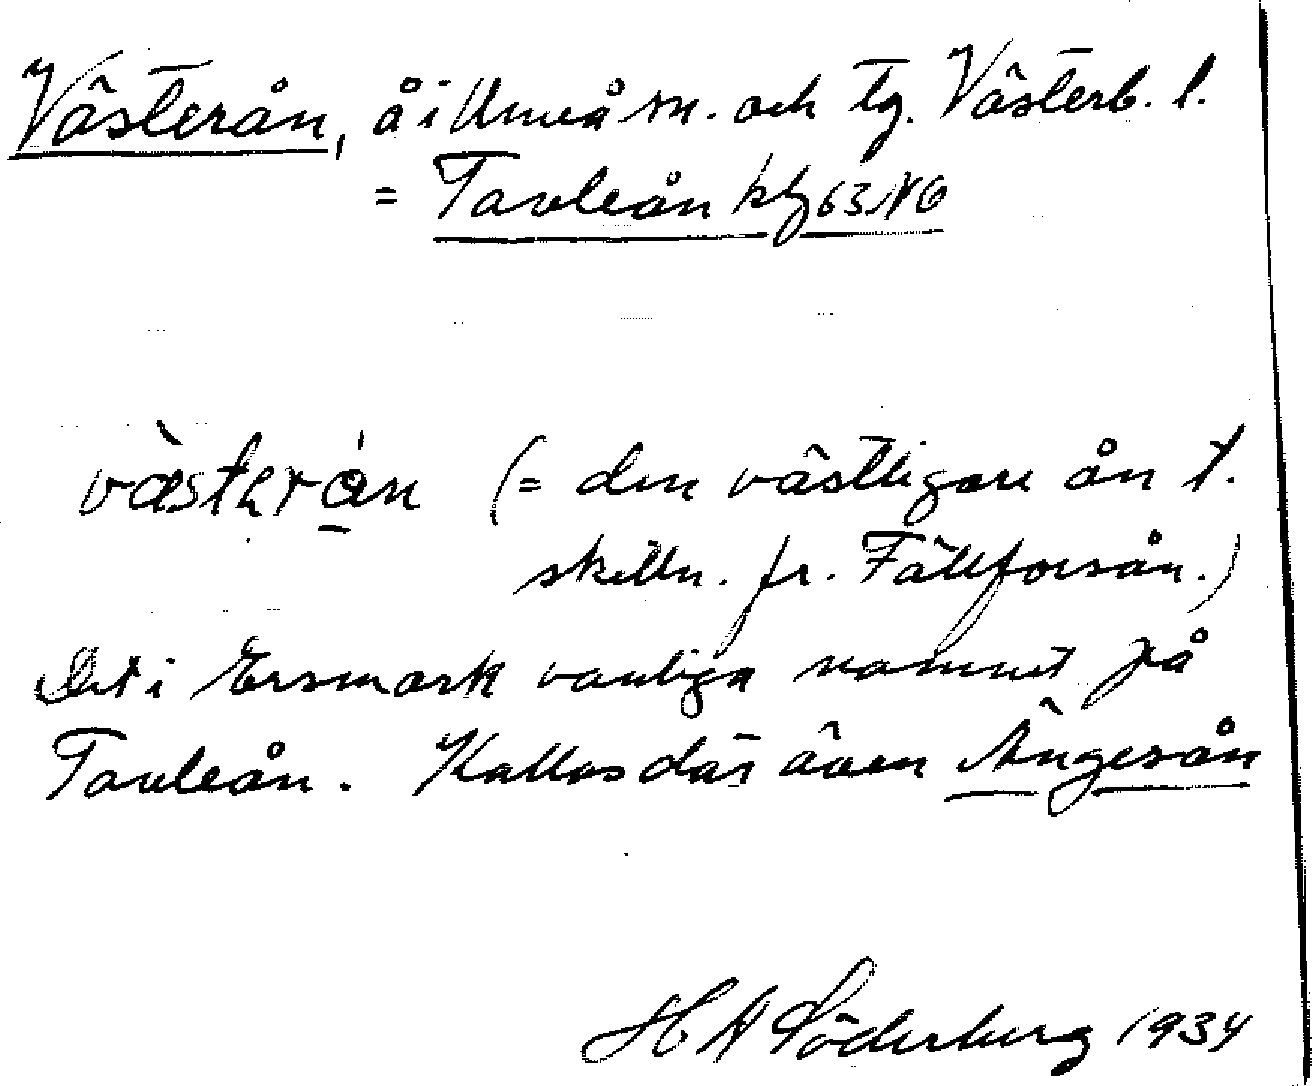 Västerån, å i Umeå sn. och tg. Västerb. l.
= Tavleån kbl 63 NO
västərån (= den västligare ån t.
skilln. fr. Fällforsån.)
Det i Ersmark vanliga namnet på
Tavleån. Kallas där även Ängesån
H A Söderberg 1934